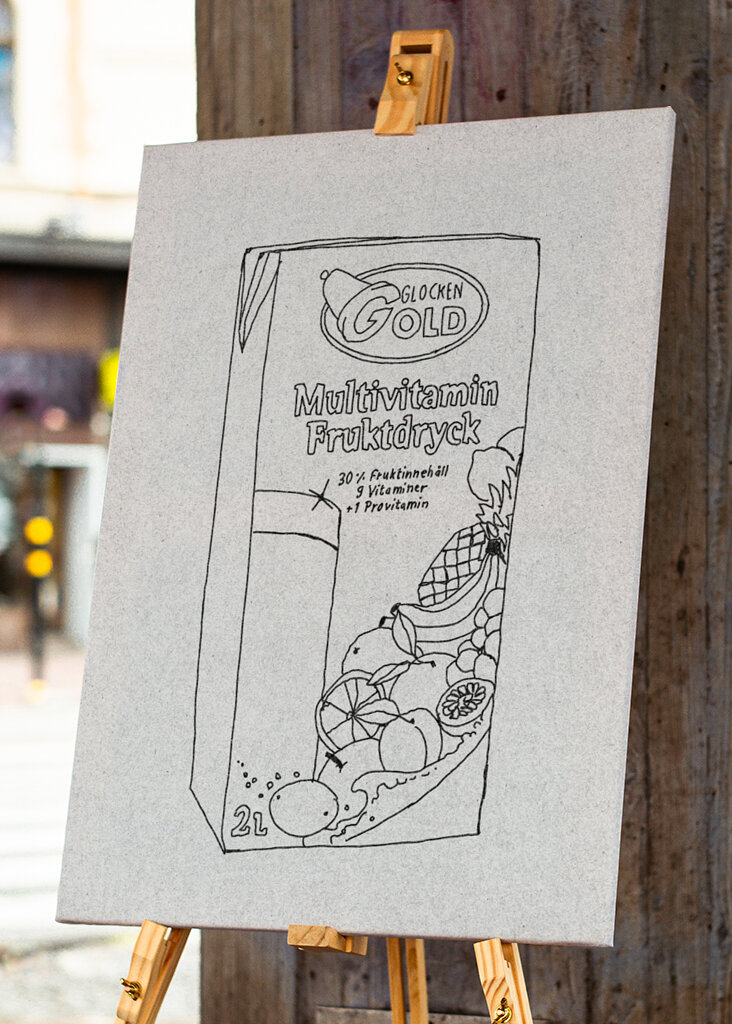 GLOCKEN
GOLD
Multivitamin
Fruktdryck
30% Fruktinnehåll
9 Vitaminer
+1 Provitamin
2L